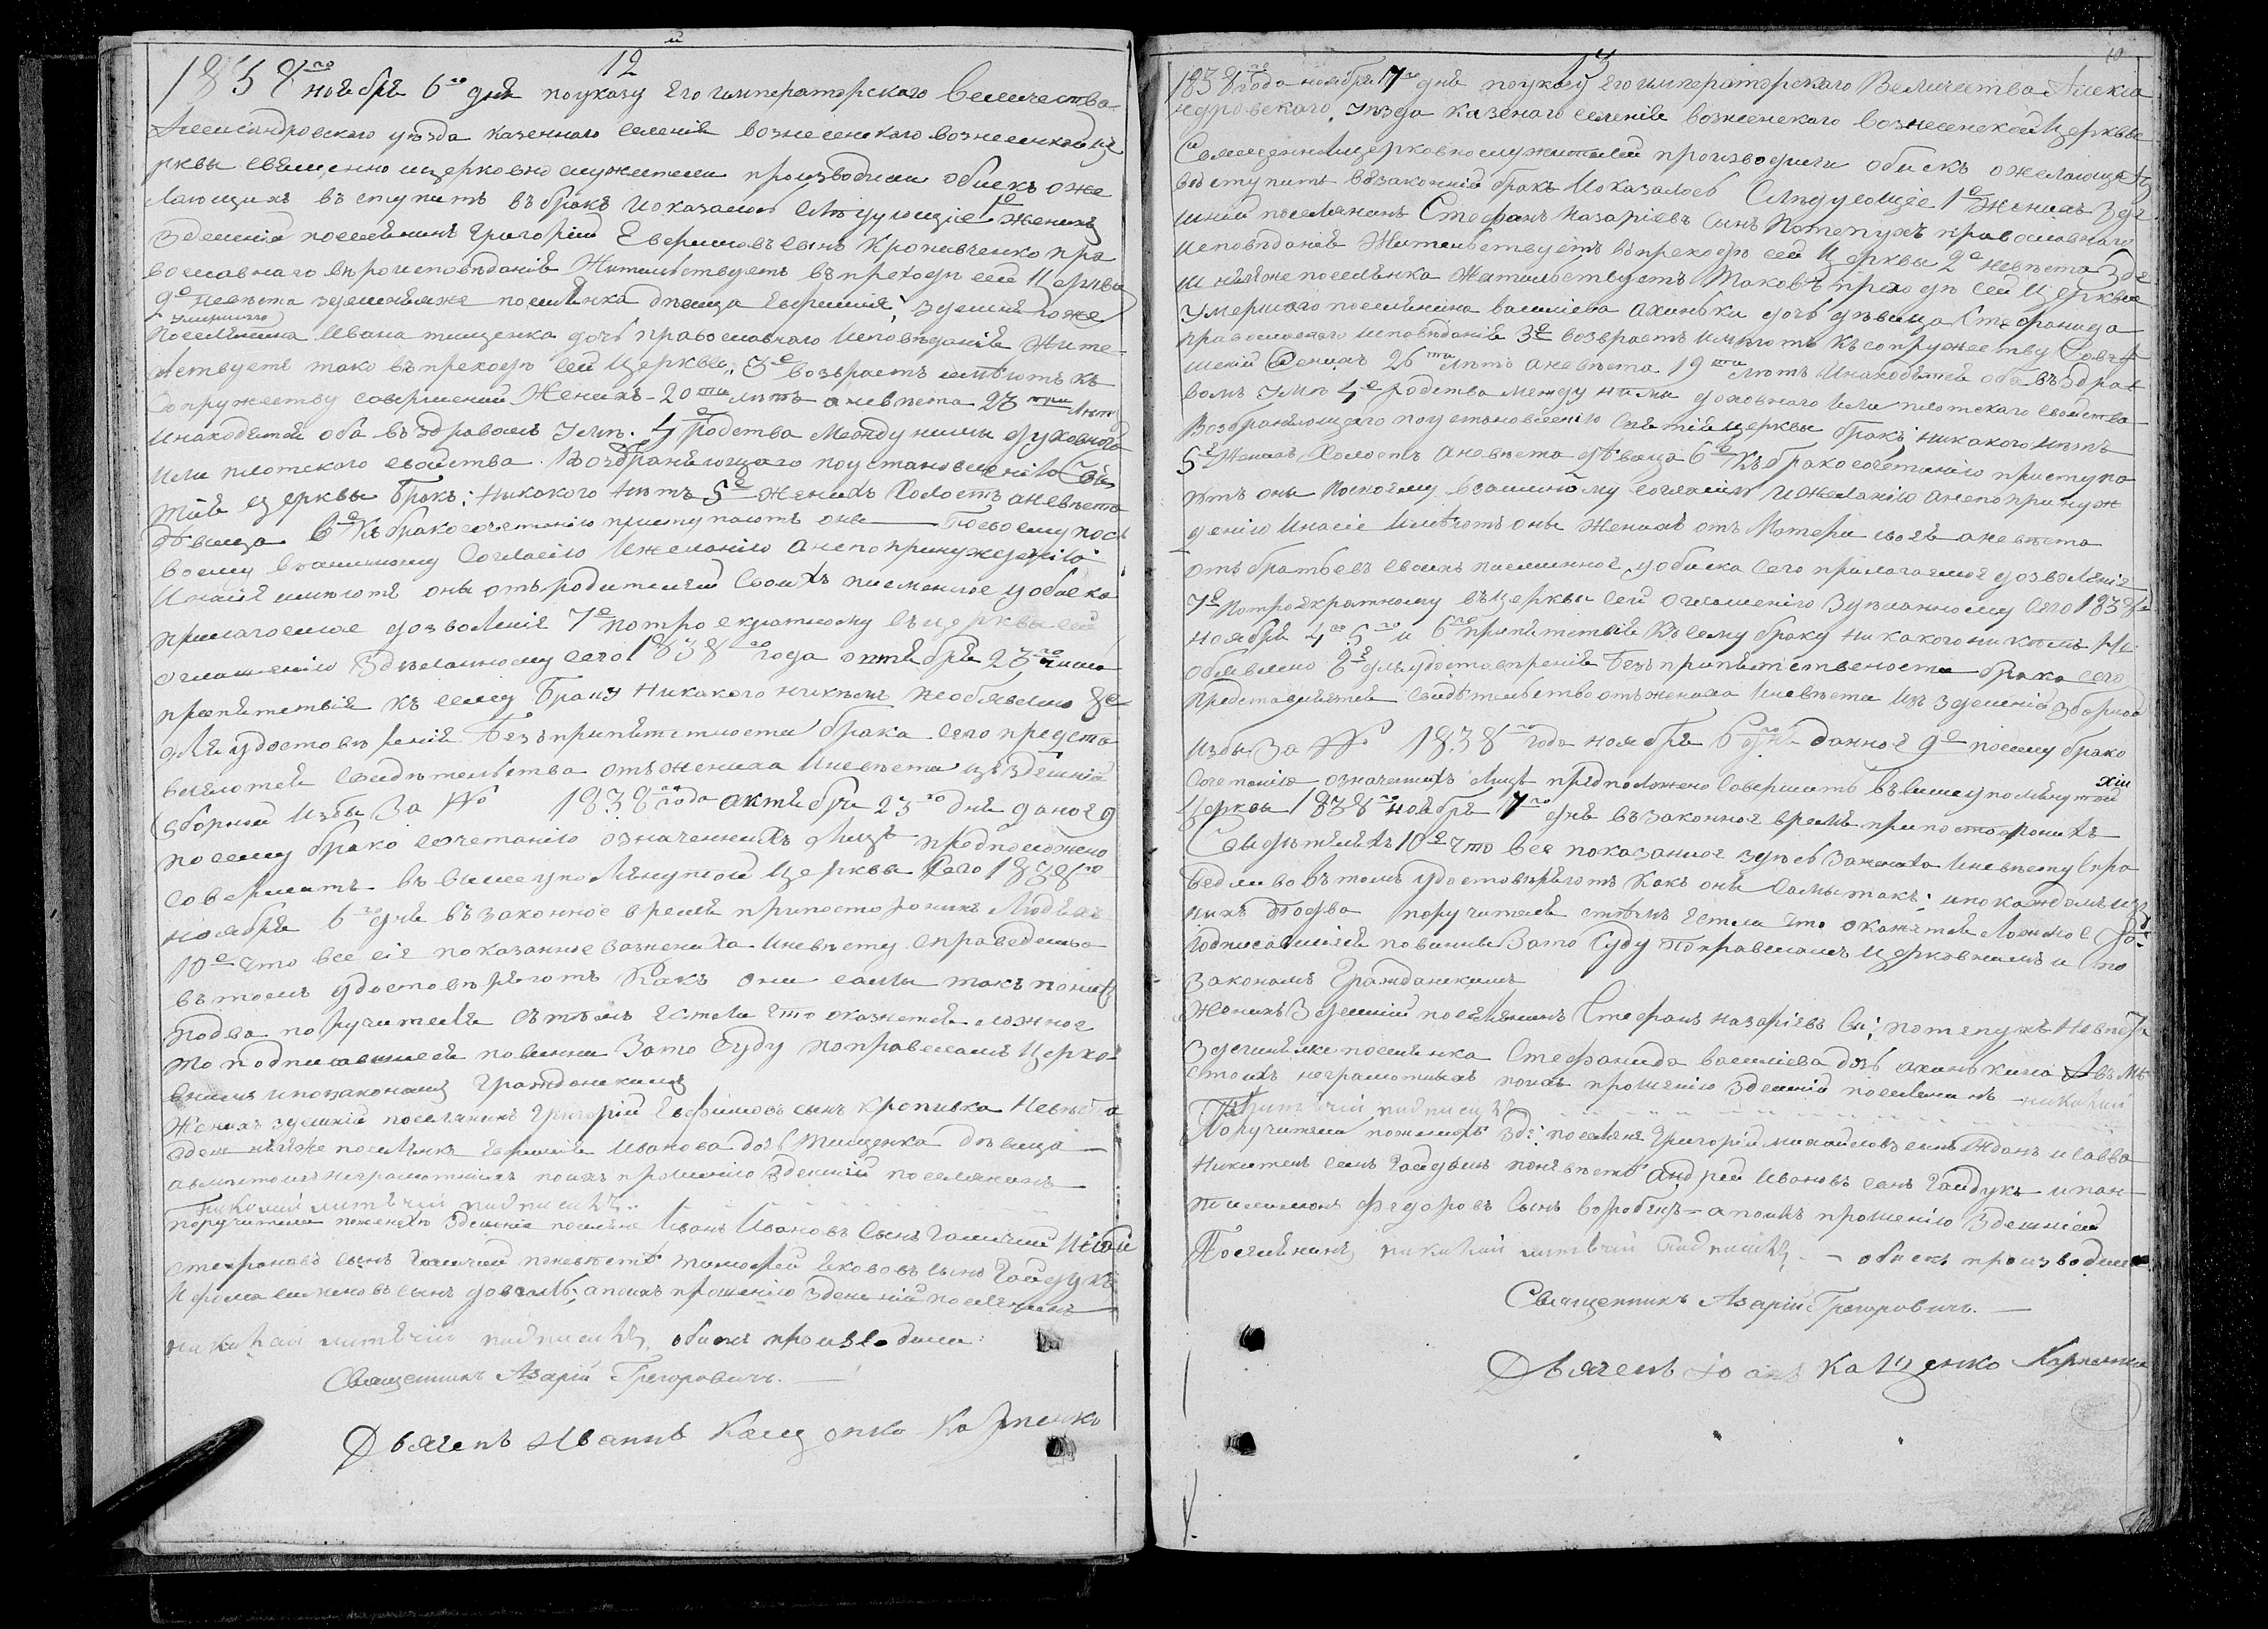 12
1838го ноября 6го дня поуказу Его императорскаго величества
Александровского уезда казенного селения вознесенского вознесенской це
рквы священно ицерковно служители производили обыск ъ оже
лающихъ въступитъ въбракъ иоказалос слѣдующіе 1е женихъ
Здешній поселянинъ Григорій Ефимовъ сынъ Кропивченко пра
вославнаго вѣроисповѣданія Жительствуетъ въ приходѣ сей Церквы
2е невѣста здешняяже поселянка дѣвица Ефросинія здешнягоже
умершаго
Поселянина Ивана тищенка дочь православнаго исповѣданія Жите
льствуетъ тако въприходѣ сей церквы; 3е возврастъ имѣютъ къ
Сопружеству совершеній Женихъ 20ти лѣтъ аневѣста 23три лѣтъ
инаходятся оба въздравомъ умѣ. 4е родства между ними духовнаго
или плотского свойства Возбраняющаго поустановленію Свя
тія церквы бракъ; никакого нѣтъ 5е женихъ Холостъ аневѣста
дѣвица 6е Къбракосочетанію приступаютъ оны Посвоему
воему взаимному Согласію ижеланію анепопринужденію
инасіе имѣютъ оны отъродителей своихъ писменное уобыска
прилагаемое дозволеніе 7е потроекратному въцерквы сей
оглашенію Зделанному сего 1838го года октября 23го числа
препятствія къ сему браку никакого никѣмъ необявлено 8е
для удостовѣренія безъприпятстности брака сего предста
вляются Свидѣтельства отъжениха иневѣсты изъздешній
зборной избы За № 1838го года актября 23го дня даное 9
посему брако сочетанію означенныхъ лицъ предположено
совершитъ въ вышеупомянутой церквы Сего 1838го
ноября 6го дня въ законное время припостороних Людяхъ
10е что все сіе показанное зажениха иневѣсту справедливо
въ томъ удостовѣряютъ Какъ они самы такъ поних
подва поручителя сътѣмъ естли что окажется ложное
то подписавшіеся повинни Зато Суду поправиламъ Церко
внымъ ипозаконамъ Гражданскимъ
Женихъ здешній поселянинъ Григорій Ефимовъ сынъ кропивка Невѣста
здешняяже поселянка Ефросинія Иванова дочь Тищенка дѣвица
авместоихъ неграмотныхъ поихъ прошенію здешній поселянинъ
подписалъ
поручители поженихѣ здешніе поселяне Иванъ Ивановъ сынъ Галичій
стефановъ сынъ Галичій поневѣстѣ тимофей Якововъ сынъ Гайдукъ
апоихъ прошенію здешній поселянинъ
подписалъ обыскъ производили:
Священникъ Азарій Григоровичъ.
Дьячекъ Иванъ Кащенко Карпенко
13
10
1838го года ноября 7го дня поуказу Его императорскаго Величества Алекса
ндровского уѣзда казеного селенія вознсенского вознесенской Церквы
Священноицерковнослужители производили обискъ ожелающихъ
въступить въ законній бракъ Иоказалось Слѣдующіе 1е Женихъ Зде
шній поселянинъ Стефанъ назаріевъ сынъ Потепухъ православнаго
исповѣданія Жительствуетъ въпреходѣ сей церквы 2е невѣста Зде
шняяже поселянка Жительствуетъ Таковъ приходѣ сей церквы
Умершаго поселянина василіева ахинька дочь дѣвица Стефанида
православнаго исповѣданія 3е возврастъ имѣютъ къ сопружеству Совер
шеній Женихъ 26ти лѣтъ аневѣста 19ти лѣтъ инаходятся оба въздра
вомъ умѣ 4е родства между ними духовнаго или плотского свойства
Возбраняющаго поустановленію святія церквы бракъ никакого нѣтъ
5е Женихъ Холостъ аневѣста дѣвица 6е Къбракосочетанію приступа
ютъ оны посвоему взаимному согласію ижеланію анепопринуж
денію инасіе имѣютъ оны Женихъ отъ Матери своея аневѣста
отъ братьевъ своихъ писменное уобиска сего прилагаемое дозволеніе
7е Потроекратному въцерквы сей оглашенію Зделанному сего 1838го
ноября 4го 5го и 6го припятствія къ сему браку никакого никѣмъ не
обявлено 8е для удостовѣренія безъприпятствености брака сего
представляется свидѣтельство отъжениха иневѣсты изъ здешній зборной
избы За № 1838го года ноября 6го дня данное 9е посему брако
Сочетанію означенихъ лицъ предположено Совершить въвишеупомянутой
церквы 1838го ноября 7го дня въ законное время припостороннихъ
Свидѣтеляхъ 10е что все показанное здѣсь Зажениха иневѣсту спра
ведливо въ томъ удостовѣряютъ Какъ они самы такъ; ипокаждомъ изъ
нихъ подва поручителя стѣмъ естли что окажется ложное
подписавшіеся повинни Зато Суду Поправиламъ церковнымъ и по
законамъ Гражданскимъ
Женихъ Здешній поселянинъ Стефанъ назаріевъ Сы: потепухъ Невѣста
Здешняяже поселянка Стефанида василіева дочь ахинькина Авъмѣ
стоихъ неграмотныхъ поихъ прошенію здешній поселянинъ
подписалъ
Поручители поженихѣ зде: поселяне Григорій михайловъ сынъ Жданъ и савва
Никитенъ сынъ Гайдукъ поневѣстѣ андрей Ивановъ сынъ Гайдукъ ипан
тилимонъ федоровъ сынъ воробецъ апоихъ прошенію здешній
Поселянинъ подписалъ обыскъ производили
Священникъ Азарій Григоровичъ.
Дьячекъ Іоанъ Кащенко Карпенко